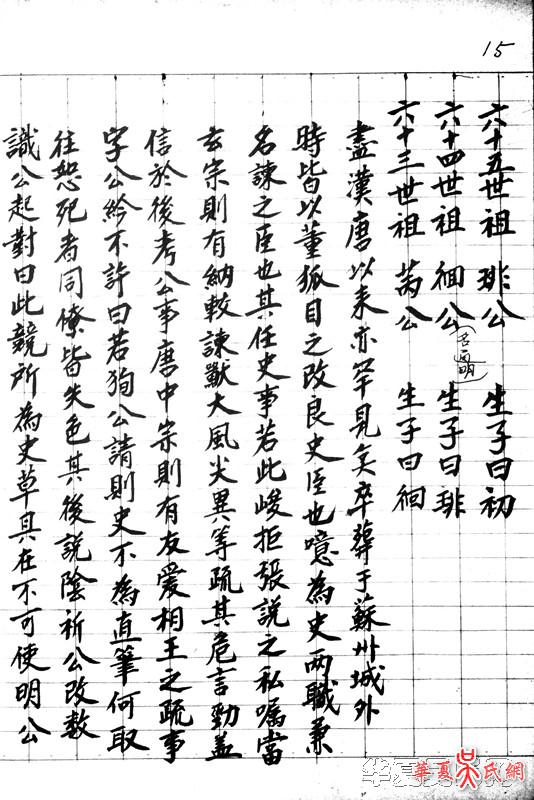 15
識公起對曰此競所為史草具在不可使明公
往恕死者同僚皆失色其後説陰祈公改数
字公紟不許曰若狥公請則史不為直筆何取
信於後考公事唐中宗則有友爱相王之疏事
玄宗則有納較諫獸大風尖異等疏其危言勁盖
名諫之臣也其任史事若此峻拒張說之私嘱當
時皆以董狐目之改良史臣也噫為史两職兼
盡漢唐以来亦罕見矣卒葬于蘇州城外
六十三世祖 苪公 生子曰徊
六十四世祖 徊公 生子曰琲
六十五世祖 琲公 生子曰初
華夏吴氏網